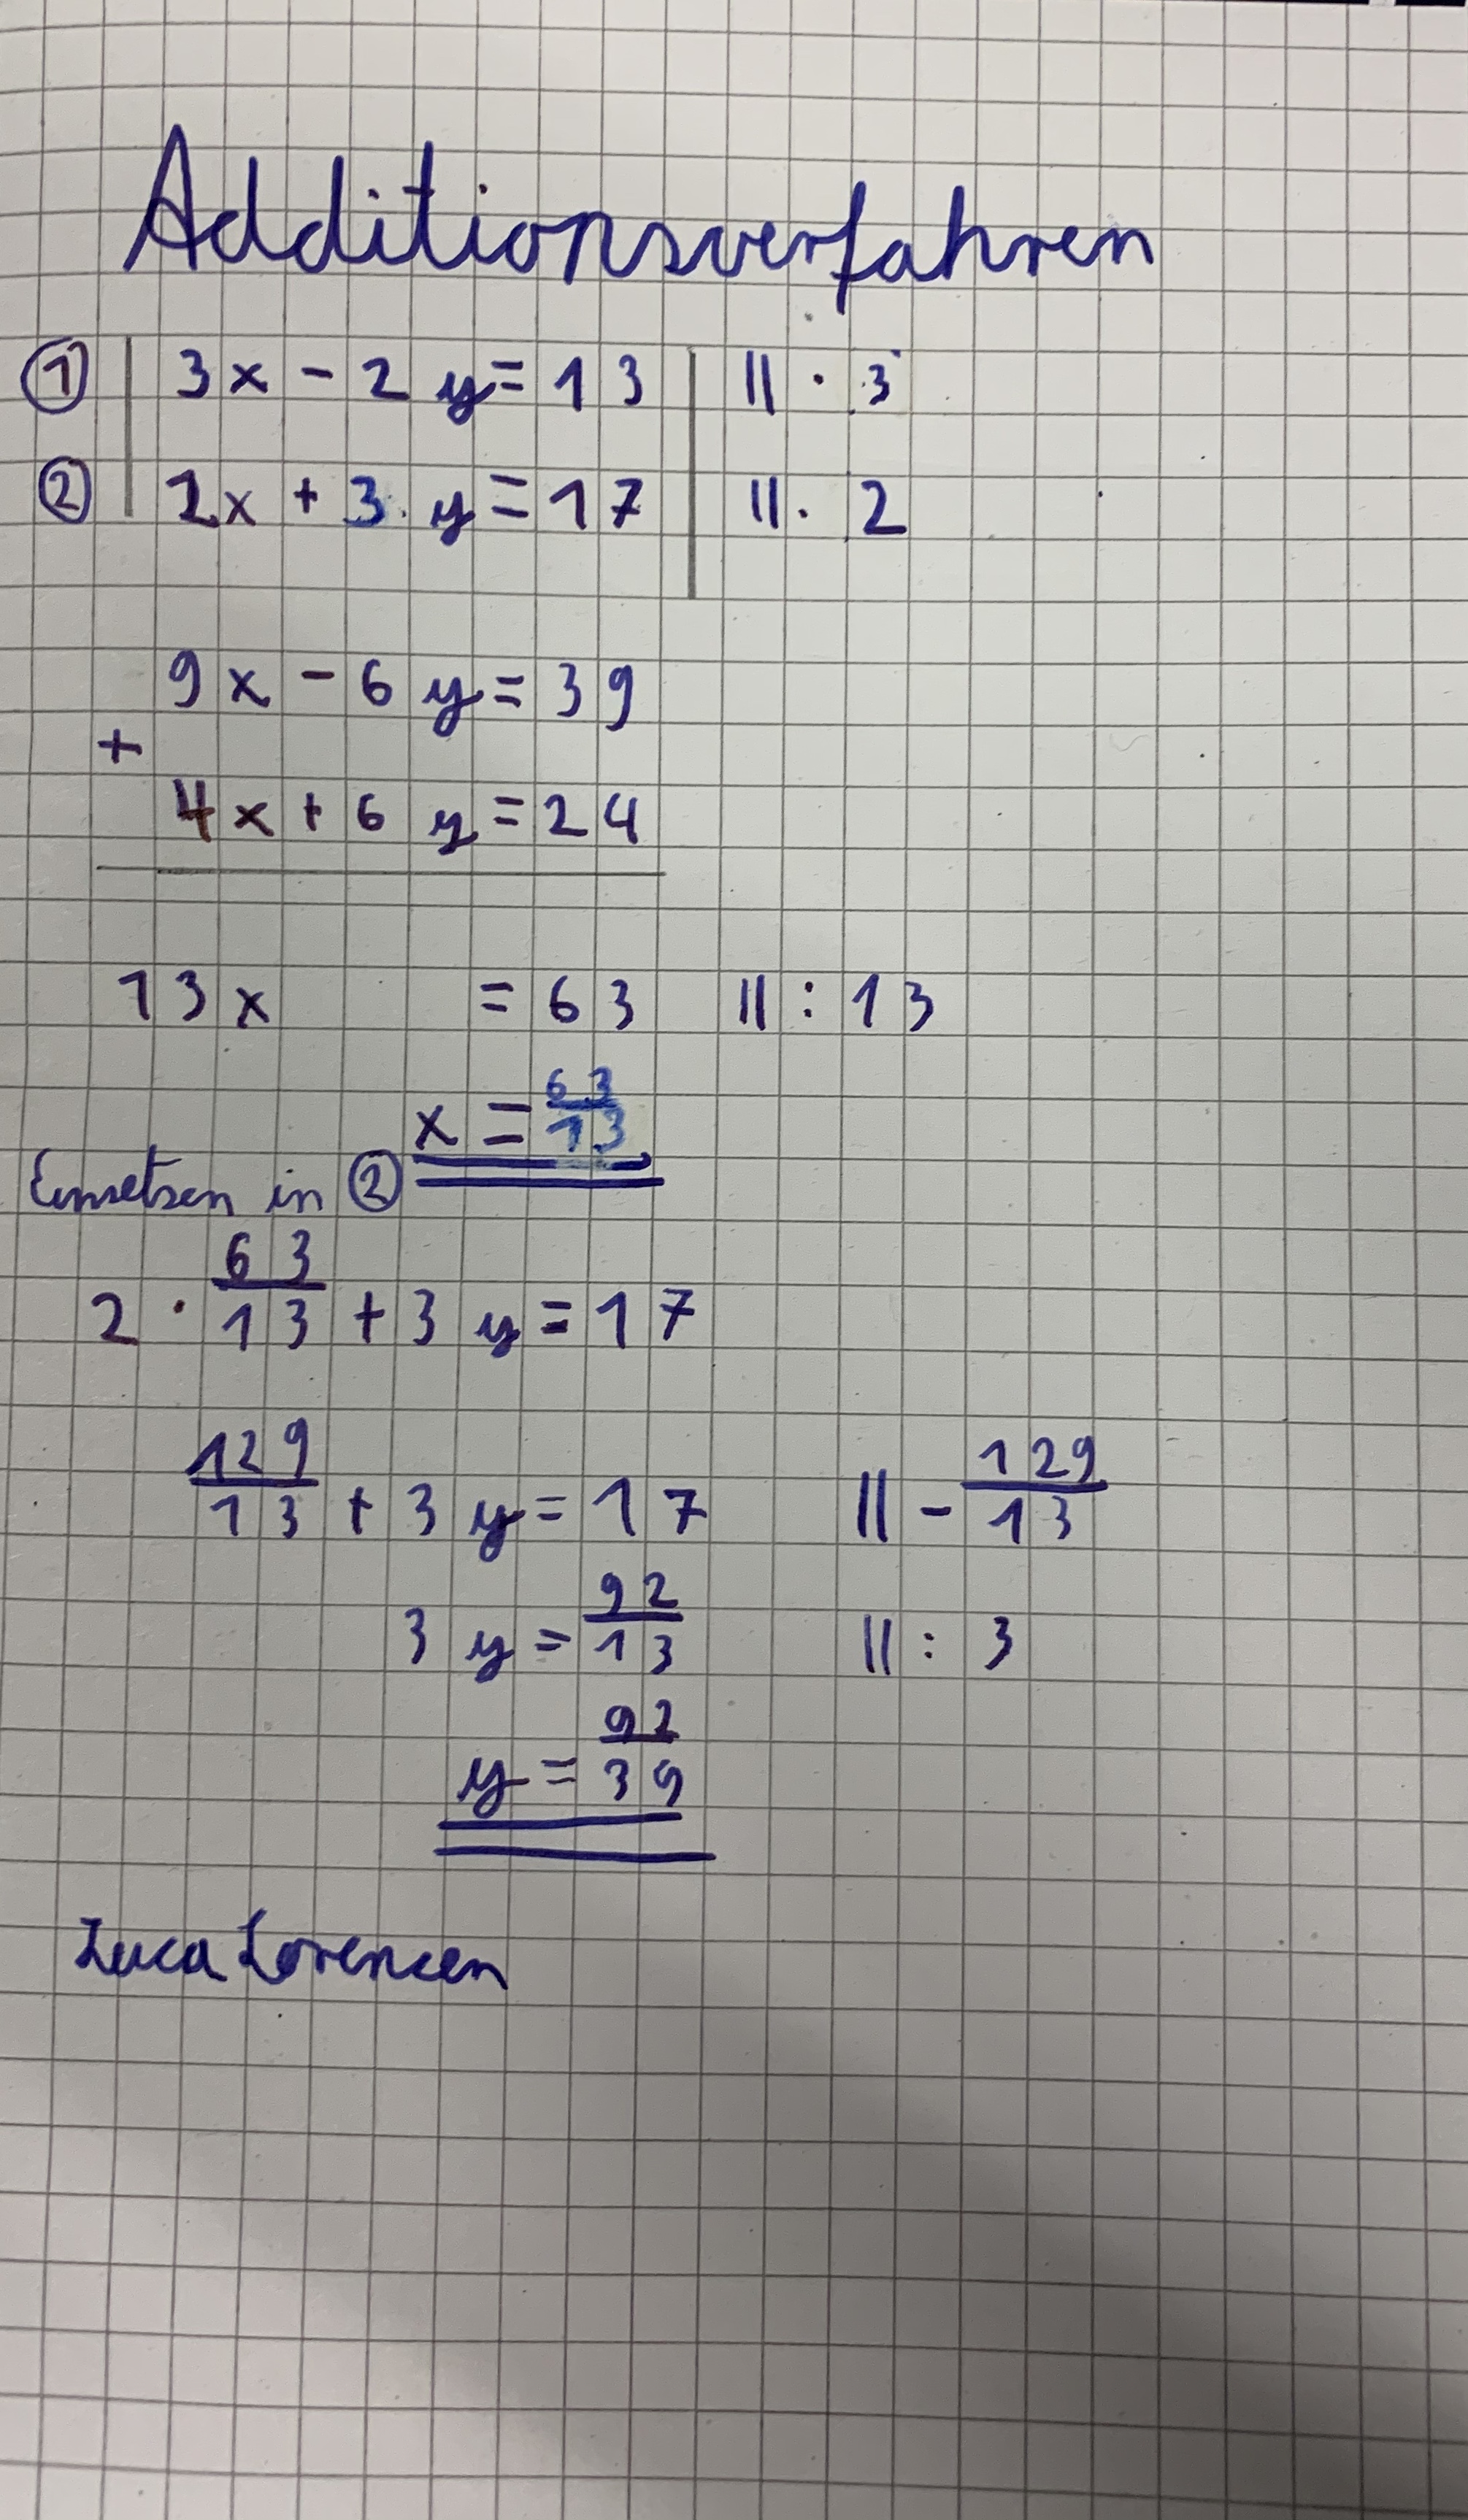 Additionsverfahren
① | 3x - 2y = 13 | || · 3
② | 2x + 3y = 17 | || · 2
9x - 6y = 39
+
4x + 6y = 24
13x = 63 || : 13
x = 63/13
Einsetzen in ②
2 · 63/13 + 3y = 17
129/13 + 3y = 17 || - 129/13
3y = 92/13 || : 3
y = 92/39
Luca Lorenzen